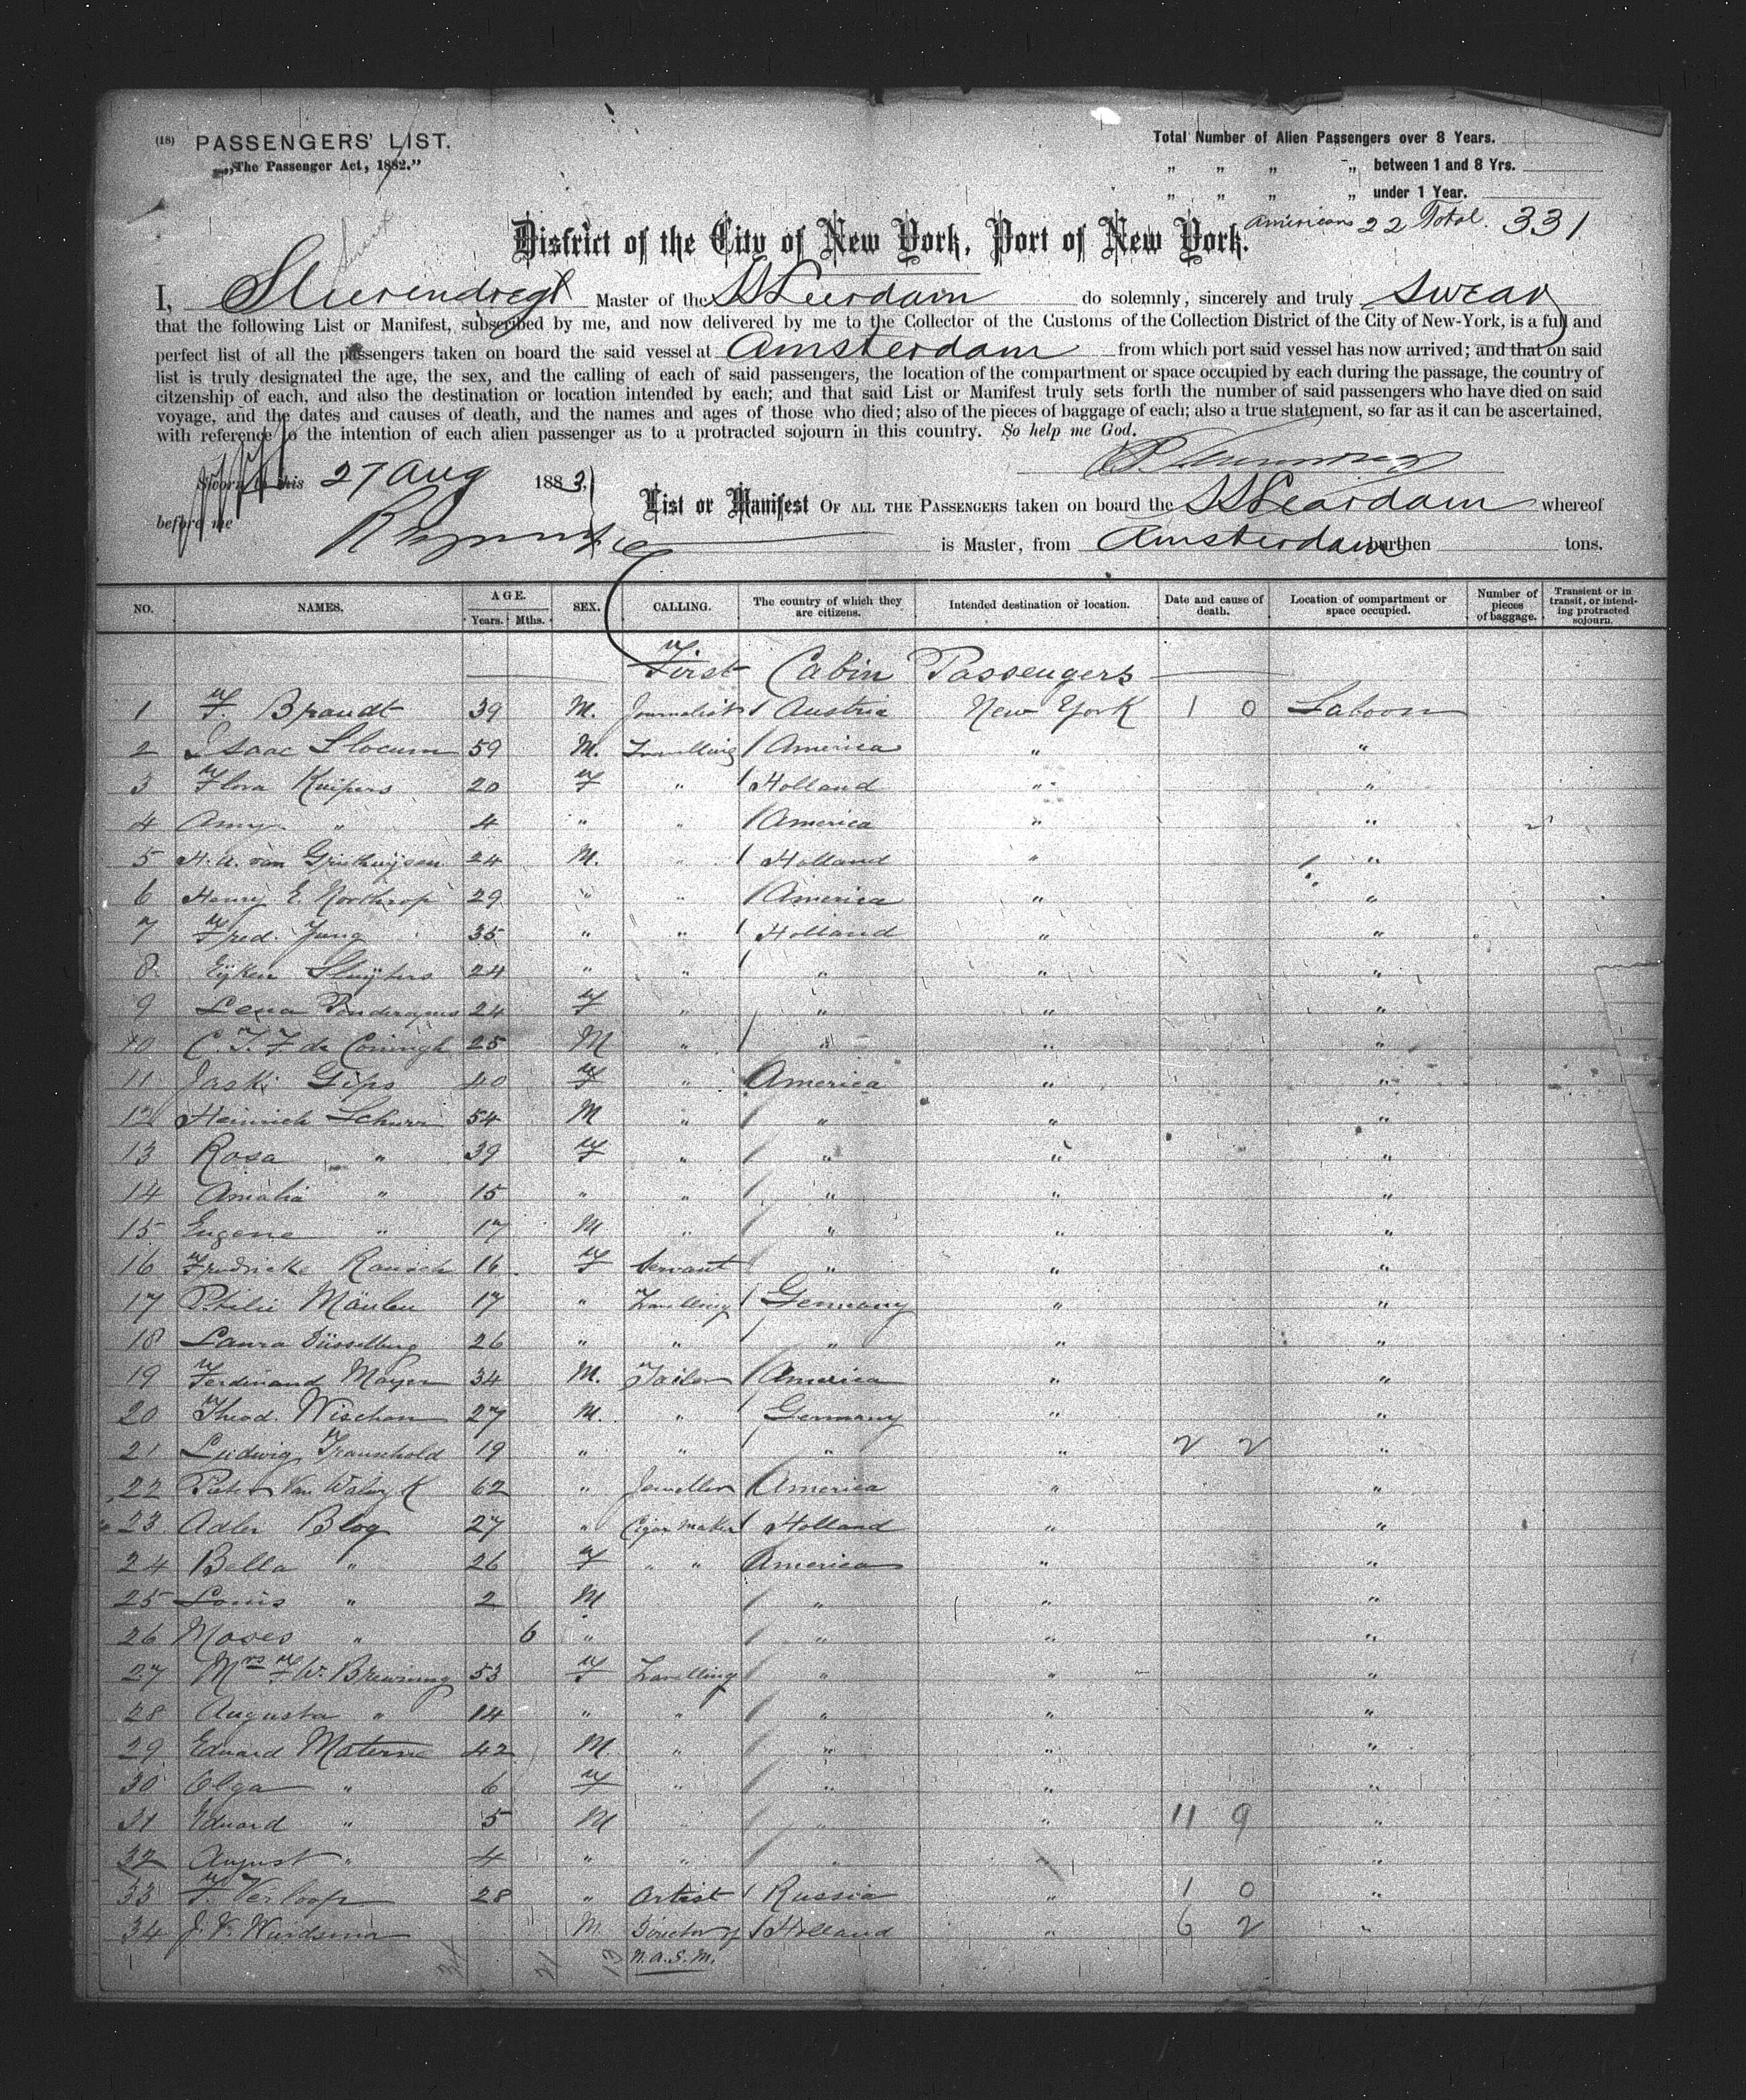 (18) PASSENGERS' LIST.
"The Passenger Act, 1882."
Total Number of Alien Passengers over 8 Years.
" " " " between 1 and 8 Yrs.
" " " " under 1 Year.
Americans 22 Total. 331
District of the City of New York, Port of New York.
I, Master of the do solemnly, sincerely and truly swear
that the following List or Manifest, subscribed by me, and now delivered by me to the Collector of the Customs of the Collection District of the City of New-York, is a full and
perfect list of all the passengers taken on board the said vessel at Amsterdam from which port said vessel has now arrived; and that on said
list is truly designated the age, the sex, and the calling of each of said passengers, the location of the compartment or space occupied by each during the passage, the country of
citzenship of each, and also the destination or location intended by each; and that said List or Manifest truly sets forth the number of said passengers who have died on said
voyage, and the dates and causes of death, and the names and ages of those who died; also of the pieces of baggage of each; also a true statement, so far as it can be ascertained,
with reference to the intention of each alien passenger as to a protracted sojourn in this country. So help me God.
Sworn to this 27 Aug 1883,
before me
List or Manifest OF ALL THE PASSENGERS taken on board the whereof
is Master, from Amsterdam burthen tons.
NO. NAMES. AGE. Years. Mths. SEX. CALLING. The country of which they are citizens. Intended destination or location. Date and cause of death. Location of compartment or space occupied. Number of pieces of baggage. Transient or in transit, or intending protracted sojourn.
First Cabin Passengers
1 F. Brandt 39 M. Journalist Austria New York 1 0 Saloon
2 Isaac Slocum 59 M. Travelling America " "
3 Flora Kuipers 20 F " Holland " "
4 Amy " 4 " " America " "
5 H. A. van 24 M. " Holland " "
6 Henry E. Northrop 29 " " America " "
7 Fred. Jung 35 " " Holland " "
8 Sluijters 24 " " " " "
9 Lena 24 F " " " "
10 C. T. F de Coningh 25 M " " " "
11 Gips 40 F " America " "
12 Heinrich Schurr 54 M " " " "
13 Rosa " 39 F " " " "
14 Amalia " 15 " " " " "
15 Eugene " 17 M " " " "
16 Fredricke Rausch 16 F Servant " " "
17 17 " Travelling Germany " "
18 Laura Düsselberg 26 " " " " "
19 Ferdinand Mayer 34 M. Tailor America " "
20 Theod. Wischan 27 M. " Germany " "
21 Ludwig Traunhold 19 " " " " 2 2 "
22 Pieter Van 62 " Jeweller America " "
23 Adler Blog 27 " Cigar Maker Holland " "
24 Bella " 26 F " " America " "
25 Louis " 2 M " " "
26 Moses " 6 " " " "
27 Mrs F. W. Brewining 53 F Travelling " " "
28 Augusta " 14 " " " " "
29 Eduard Materne 42 M. " " " "
30 Olga " 6 F " " " "
31 Eduard " 5 M " " 11 9 "
32 August " 4 " " " "
33 F. Verloop 28 " Artist Russia " 1 0 "
34 J. V. M. Director of Holland " 6 2 "
N.A.S.M.